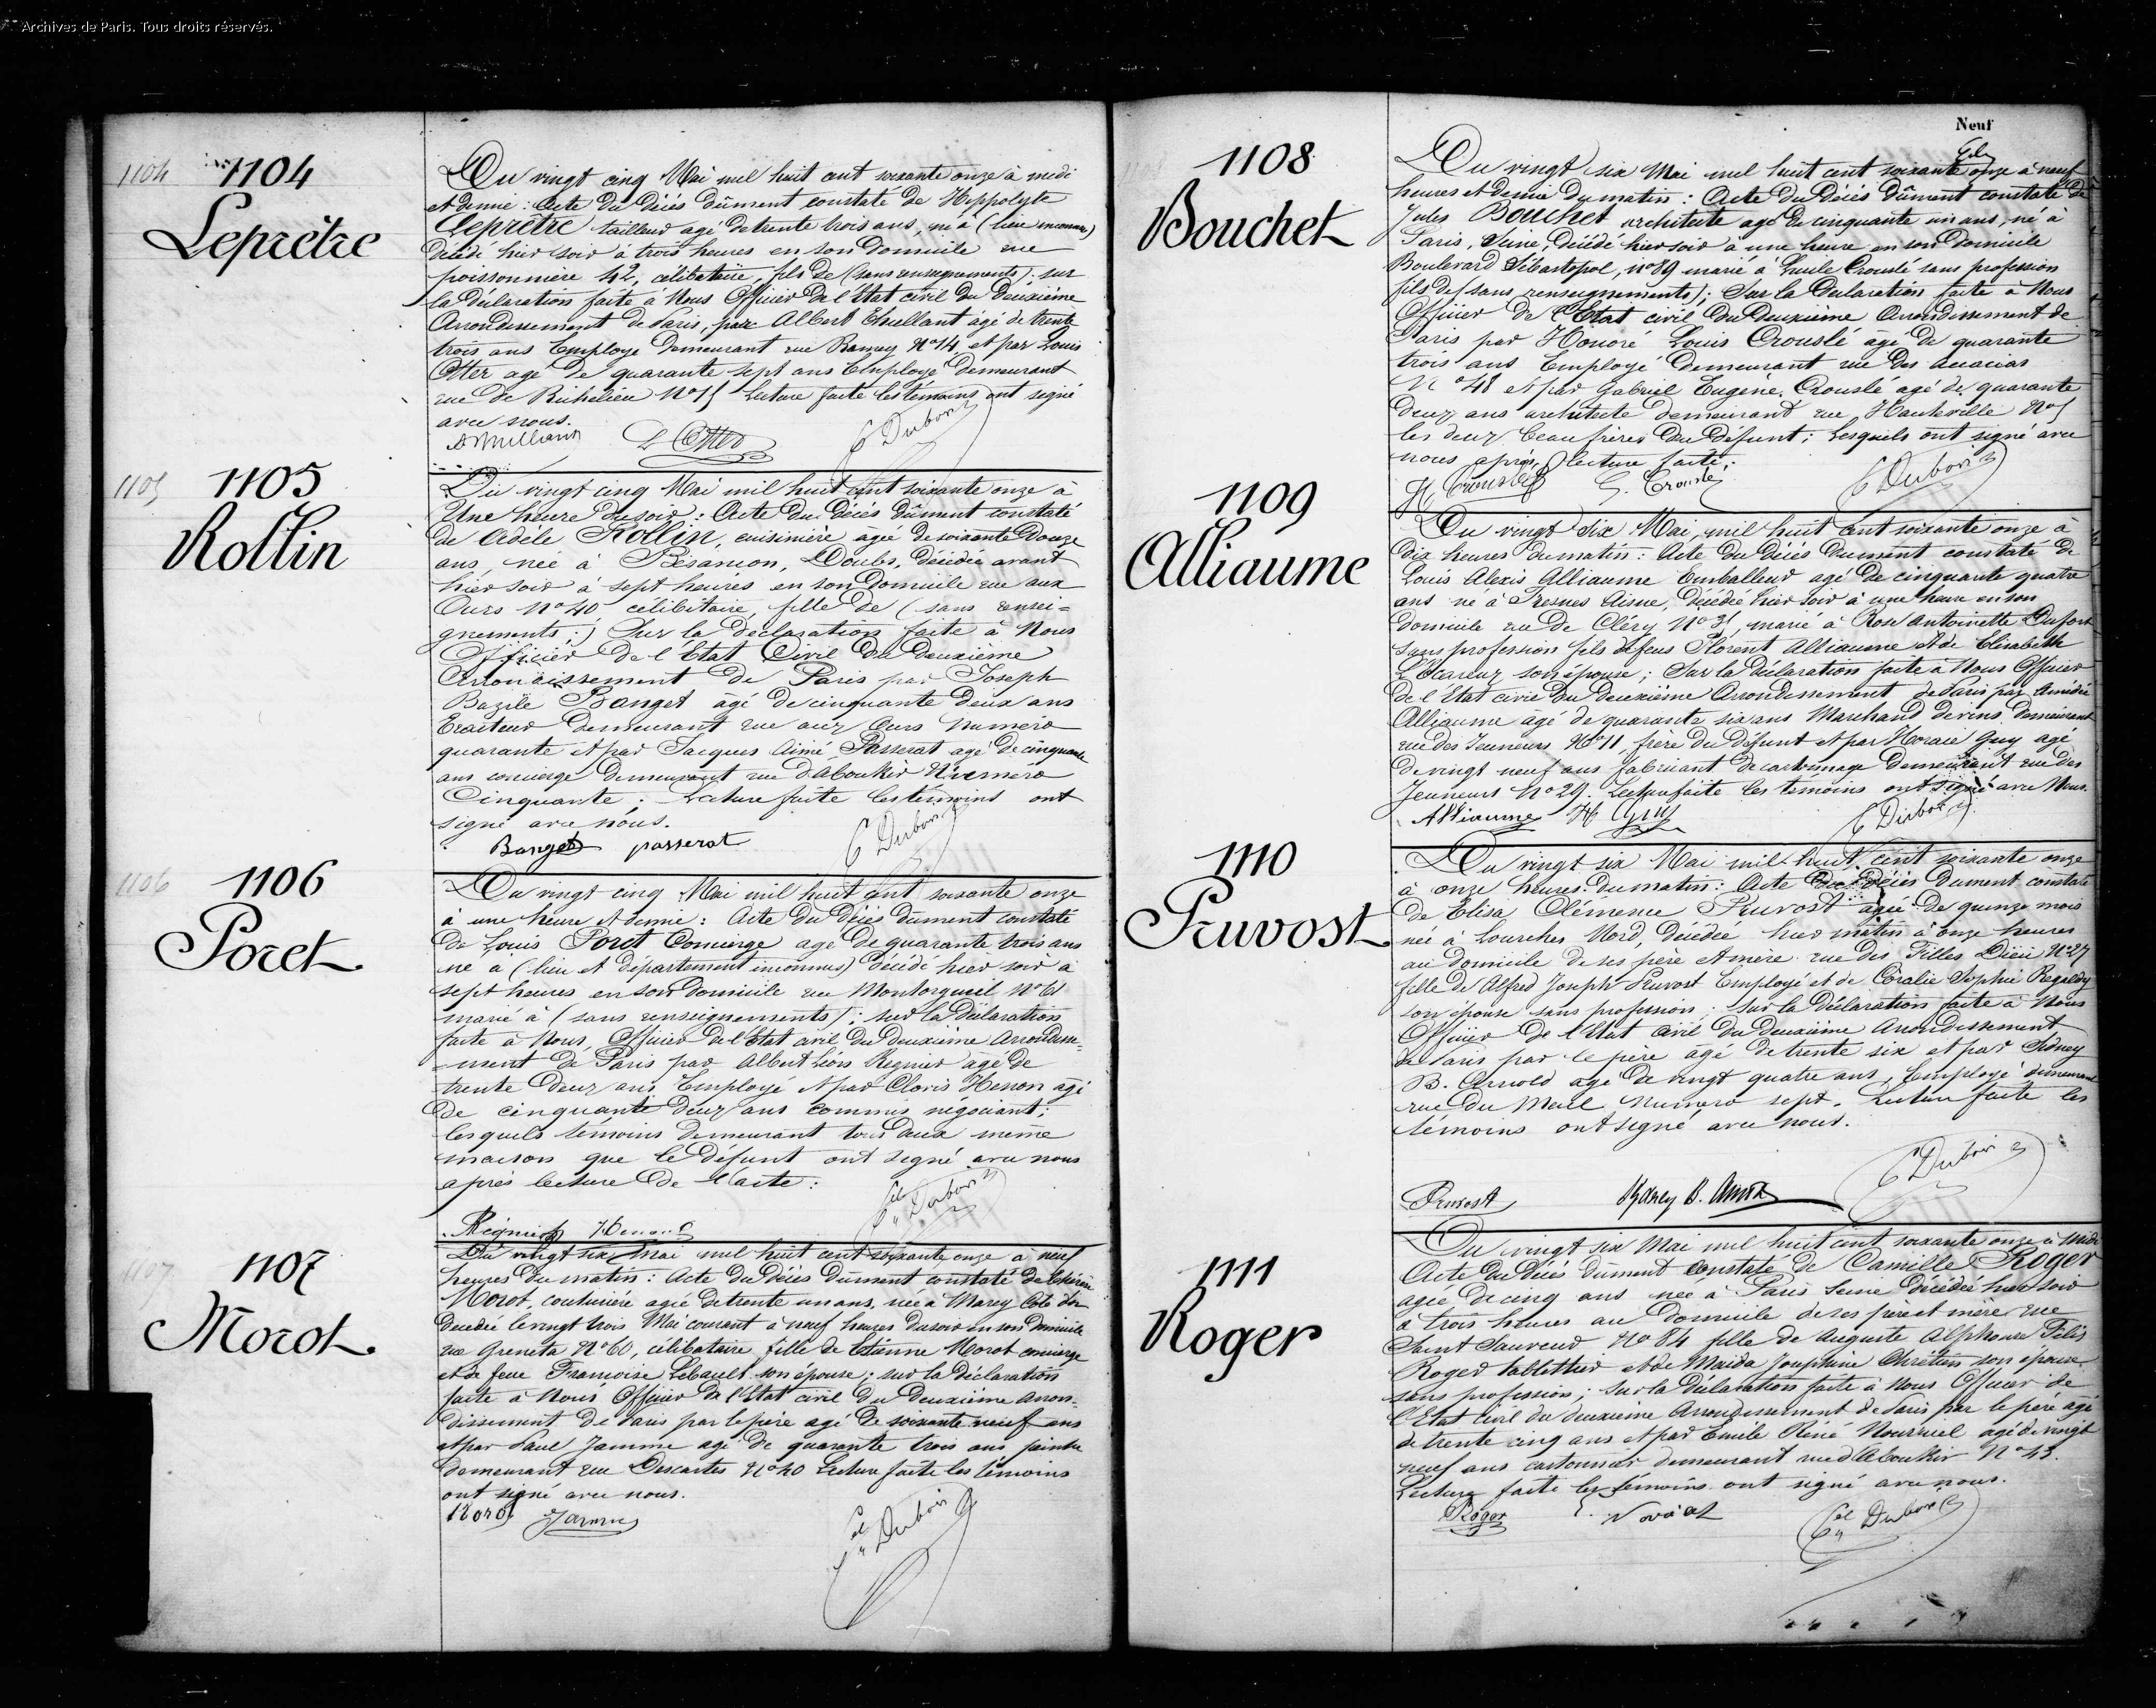 Archives de Paris. Tous droits réservés.
1104 1104
Leprêtre
Du vingt cinq Mai mil huit cent soixante onze à midi
et demie : Acte du décès dûment constaté de Hippolyte
Leprêtre tailleur agé de trente trois ans, né à (lieu inconnu)
décédé hier soir à trois heures en son domicile rue
poissonnière 42, célibataire, fils de (sans renseignements) ; sur
la déclaration faite à Nous Officier de l'Etat civil du deuxième
Arrondissement de Paris, par Albert âgé de trente
trois ans Employé demeurant rue Ramey No 14 et par Louis
Otter agé de quarante sept ans Employé demeurant
rue de Richelieu No 15 Lecture faite les témoins ont signé
avec nous.
L Otter E Dubois
1105 1105
Rollin
Du vingt cinq Mai mil huit cent soixante onze à
Une heure du soir : Acte du décès dûment constaté
de Adèle Rollin, cuisinière âgée de soixante douze
ans, née à Besançon, Doubs, décédée avant
hier soir à sept heures en son Domicile rue aux
Ours No 40 célibitaire, fille de (sans rensei=
gnements ;) Sur la déclaration faite à Nous
Officier de l'Etat Civil du deuxième
Arrondissement de Paris par Joseph
Bazile Banget âgé de cinquante deux ans
Traiteur demeurant rue aux Ours numéro
quarante et par Jacques Aimé Passerat agé de cinquante
ans concierge demeurant rue d'Aboukir Numéro
Cinquante ; Lecture faite les témoins ont
signé avec nous.
Banget passerat E Dubois
1106 1106
Poret
Du vingt cinq Mai mil huit cent soixante onze
à une heure et demie : Acte du décès dument constaté
de Louis Poret Concierge agé de quarante trois ans
né à (lieu et département inconnus) décédé hier soir à
sept heures en son domicile rue Montorgueil No 61
marié à (sans renseignements) ; sur la déclaration
faite à Nous, Officier de l'Etat civil du deuxième Arrondisse=
=ment de Paris par Albert Léon Regnier agé de
trente deux ans Employé et par Clovis Henon âgé
de cinquante deux ans commis négociant ;
lesquels témoins demeurant tous deux même
maison que le défunt ont signé avec nous
après lecture de l'acte :
Regnier Henon E Dubois
1107 1107
Morot
Du vingt six Mai mil huit cent soixante onze à neuf
heures du matin : Acte du décès dûment constaté de
Morot, couturière agée de trente un ans, née à Marey Côte d'or
décédée le vingt trois Mai courant à neuf heures du soir en son domicile
rue Greneta No 60, célibataire, fille de Etienne Morot concierge
et de feue Françoise Lebault son épouse ; sur la déclaration
faite à Nous Officier de l'Etat civil du Deuxième Arron=
dissement de Paris par le père agé de soixante neuf ans
et par Paul Jamme agé de quarante trois ans peintre
demeurant rue Descartes No 40 Lecture faite les témoins
ont signé avec nous.
Morot Jamme E Dubois
Neuf
1108
Bouchet
Du vingt six Mai mil huit cent soixante onze à neuf
heures et demie du matin : Acte du décès dûment constaté de
Jules Bouchet architecte agé de cinquante un ans, né à
Paris, Seine, décédé hier soir à une heure en son domicile
Boulevard Sébastopol, no 89 marié à Crouslé sans profession
fils de (sans renseignements) ; Sur la déclaration faite à Nous
Officier de l'Etat civil du Deuxième Arrondissement de
Paris par Honoré Louis Crouslé âgé de quarante
trois ans Employé demeurant rue des Acacias
No 48 et par Gabriel Eugène Crouslé agé de quarante
deux ans architecte demeurant rue Hauteville No 5
les deux beaux frères du défunt ; Lesquels ont signé avec
nous après lecture faite.
H Crouslé G. Crouslé E Dubois
1109
Alliaume
Du vingt six Mai mil huit cent soixante onze à
dix heures du matin : Acte du décès dument constaté de
Louis Alexis Alliaume Emballeur agé de cinquante quatre
ans né à Fresnes Aisne, décédé hier soir à une heure en son
domicile rue de Cléry No 31, marié à Rose Antoinette Dufort
sans profession fils de feus Florent Alliaume et de Elisabeth
son épouse ; Sur la déclaration faite à Nous Officier
de l'Etat civil du deuxième Arrondissement de Paris par Amédée
Alliaume agé de quarante six ans Marchand de vins demeurant
rue des Jeuneurs No 11, frère du défunt et par Horace Guy agé
de vingt neuf ans fabricant de cartonnage demeurant rue des
Jeuneurs No 29. Lecture faite les témoins ont signé avec Nous.
Alliaume H Guy E Dubois
1110
Pruvost
Du vingt six Mai mil huit cent soixante onze
à onze heures du matin : Acte du décès dument constaté
de Elisa Clémence Pruvost agée de quinze mois
née à Lourches Nord, décédée hier matin à onze heures
au domicile de ses père et mère rue des Filles Dieu No 27
fille de Alfred Joseph Pruvost Employé et de Coralie Sophie
son épouse sans profession ; sur la déclaration faite à Nous
Officier de l'Etat civil du Deuxième Arrondissement
de Paris par le père âgé de trente six et par Sidney
B. Arnold agé de vingt quatre ans, Employé demeurant
rue du Mail numéro sept. Lecture faite les
témoins ont signé avec nous.
Pruvost Sidney B. Arnold E Dubois
1111
Roger
Du vingt six Mai mil huit cent soixante onze à midi
Acte du décès dûment constaté de Camille Roger
agée de cinq ans née à Paris Seine décédée hier soir
à trois heures au domicile de ses père et mère rue
Saint Sauveur No 84 fille de Auguste Alphonse Félix
Roger tablettier et de Maida Joséphine Chrétien son épouse
sans profession ; Sur la déclaration faite à Nous Officier de
l'Etat civil du deuxième Arrondissement de Paris par le père agé
de trente cinq ans et par Emile René agé de vingt
neuf ans cartonnier demeurant rue d'Aboukir No 43.
Lecture faite les témoins ont signé avec nous.
Roger E Dubois